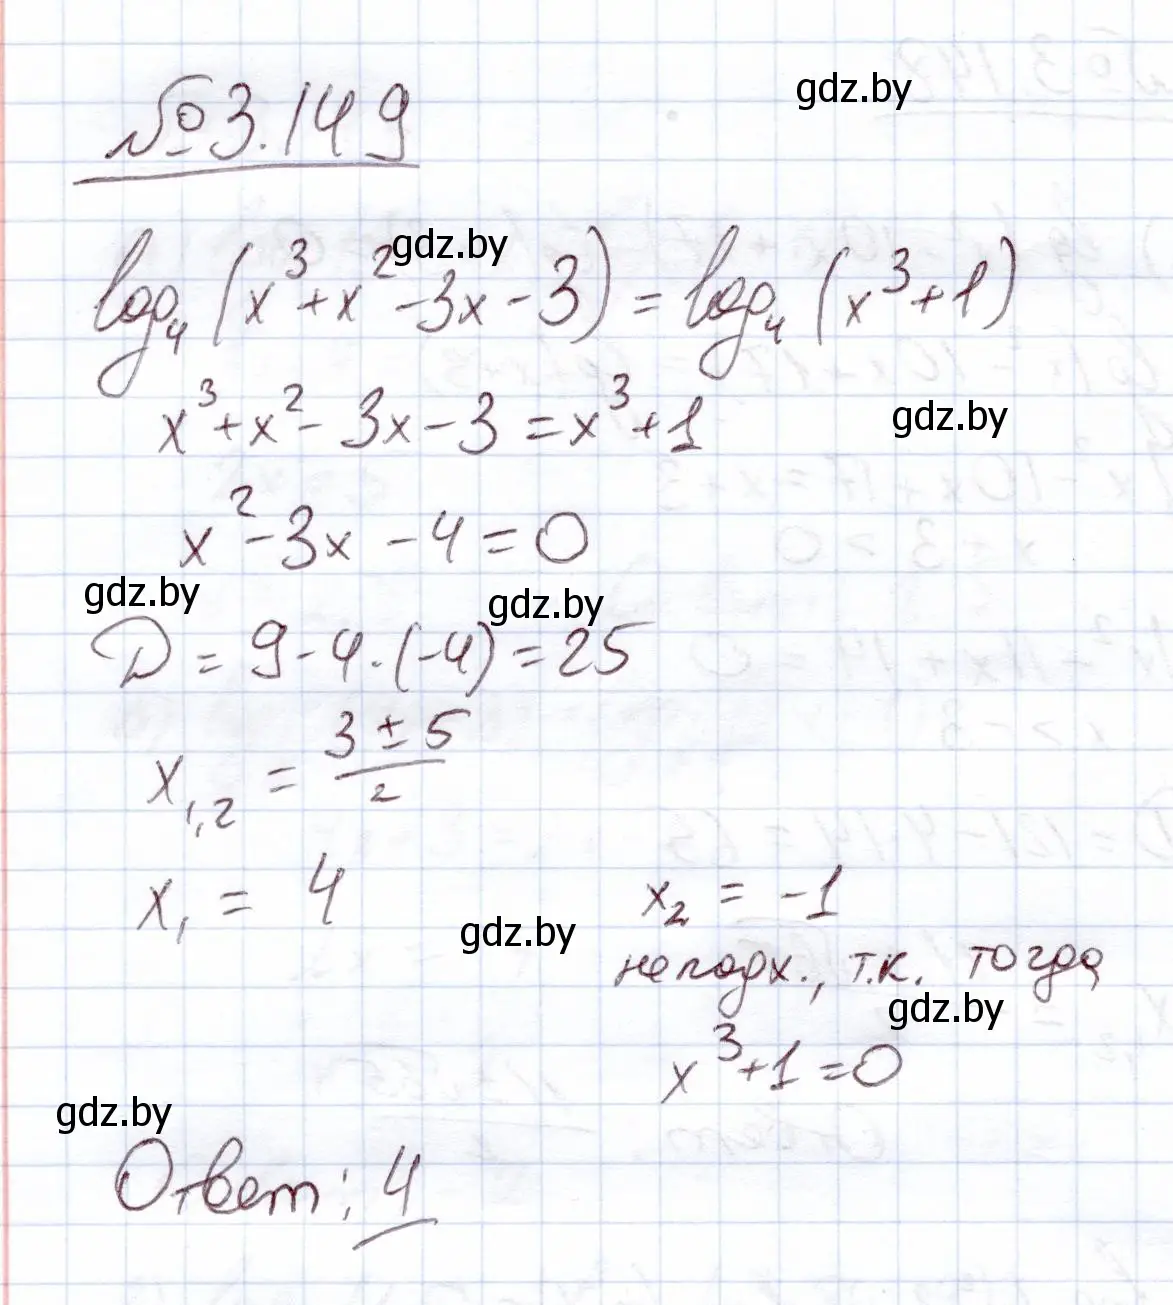 №3.149
gdz.by
gdz.by
log₄(x³+x²-3x-3)=log₄(x³+1)
x³+x²-3x-3=x³+1
gdz.by
x²-3x-4=0
gdz.by
gdz.by
D=9-4·(-4)=25
x₁,₂ = (3±5)/2
x₁ = 4
x₂ = -1
gdz.by
не подх., т.к. тогда
gdz.by
x³+1=0
gdz.by
Ответ: 4